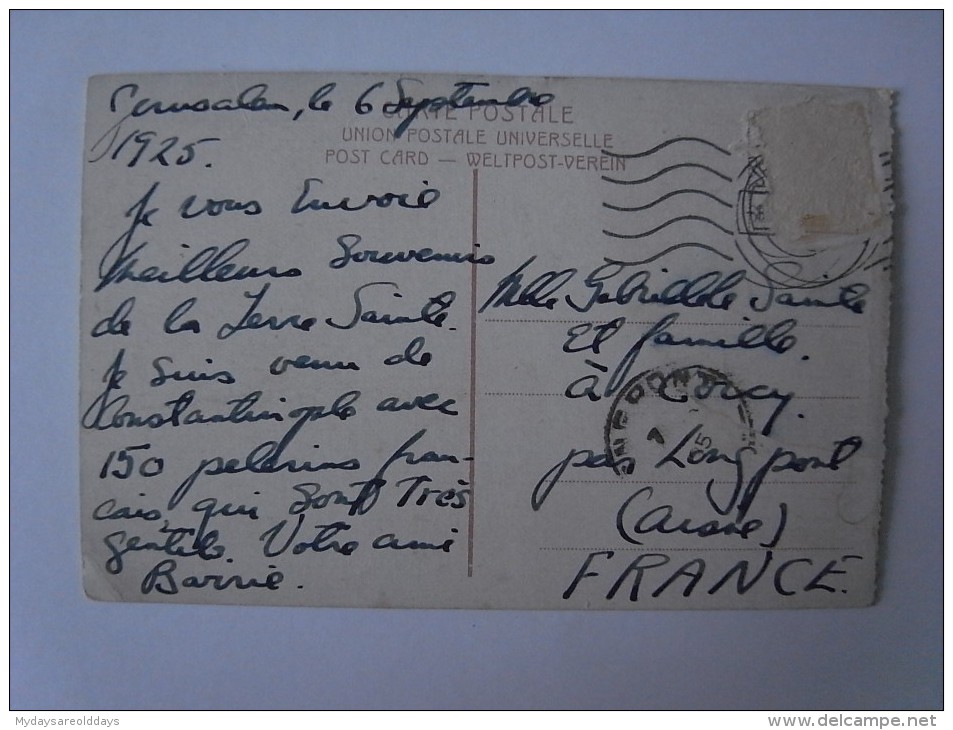 Jerusalem, le 6 Septembre
1925.
CARTE POSTALE
UNION POSTALE UNIVERSELLE
POST CARD — WELTPOST-VEREIN
Je vous Envoie
Meilleurs Souvenirs
de la Terre Sainte.
Je suis venu de
Constantinople avec
150 pelerins fran-
cais, qui sont Très
gentils. Votre ami
Barrie.
Melle Gabrielle de Sainte
Et famille.
à Corcy.
par Longpont
(Aisne)
FRANCE.
Mydaysareolddays
www.delcampe.net